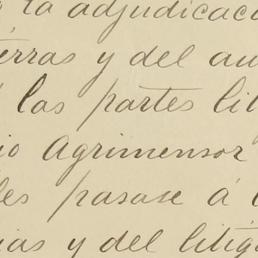 la adjudicac
erras y del au
las partes lit
io Agrimensor
les pasase á
ias y del litig